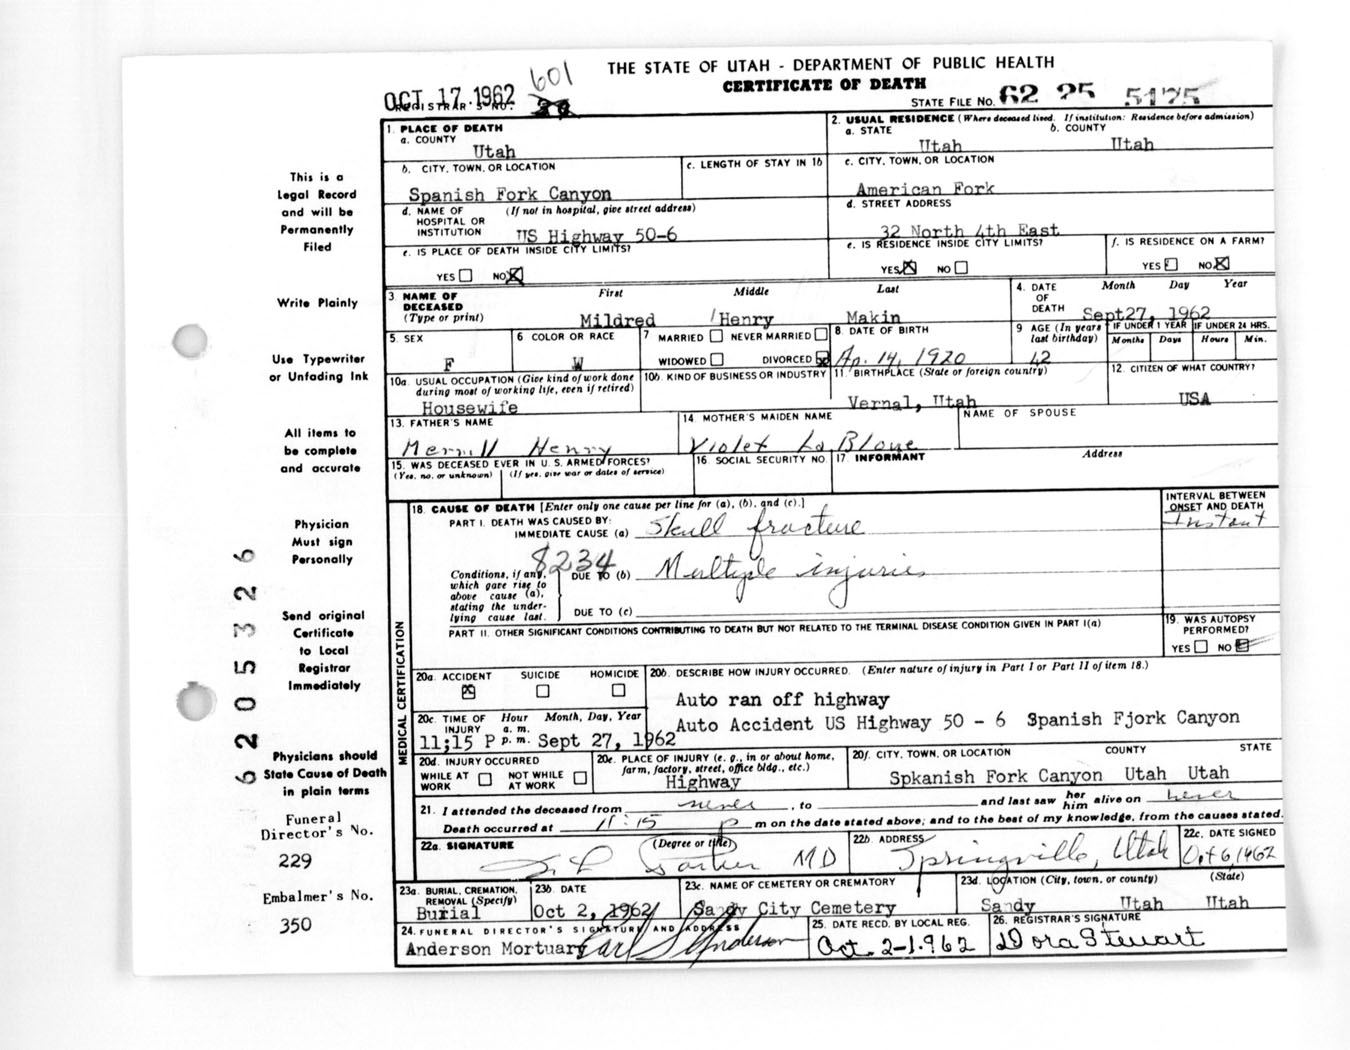 THE STATE OF UTAH - DEPARTMENT OF PUBLIC HEALTH
CERTIFICATE OF DEATH
OCT 17 1962 601
REGISTRAR'S NO.
STATE FILE NO. 62 25 5125
This is a
Legal Record
and will be
Permanently
Filed
Write Plainly
Use Typewriter
or Unfading Ink
All items to
be complete
and accurate
Physician
Must sign
Personally
Send original
Certificate
to Local
Registrar
Immediately
Physicians should
State Cause of Death
in plain terms
Funeral
Director's No.
229
Embalmer's No.
350
6205326
1. PLACE OF DEATH
a. COUNTY
Utah
2. USUAL RESIDENCE (Where deceased lived. If institution: Residence before admission)
a. STATE b. COUNTY
Utah Utah
b. CITY, TOWN, OR LOCATION
Spanish Fork Canyon
c. LENGTH OF STAY IN 1b
c. CITY, TOWN, OR LOCATION
American Fork
d. NAME OF HOSPITAL OR INSTITUTION (If not in hospital, give street address)
US Highway 50-6
d. STREET ADDRESS
32 North 4th East
e. IS PLACE OF DEATH INSIDE CITY LIMITS?
YES NO X
e. IS RESIDENCE INSIDE CITY LIMITS?
YES X NO
f. IS RESIDENCE ON A FARM?
YES NO X
3. NAME OF DECEASED (Type or print)
First Middle Last
Mildred Henry Makin
4. DATE OF DEATH Month Day Year
Sept27, 1962
5. SEX
F
6 COLOR OR RACE
W
7 MARRIED NEVER MARRIED
WIDOWED DIVORCED X
8. DATE OF BIRTH
Ap. 14, 1920
9 AGE (In years last birthday)
42
IF UNDER 1 YEAR Months Days
IF UNDER 24 HRS. Hours Min.
10a. USUAL OCCUPATION (Give kind of work done during most of working life, even if retired)
Housewife
10b. KIND OF BUSINESS OR INDUSTRY
11. BIRTHPLACE (State or foreign country)
Vernal, Utah
12. CITIZEN OF WHAT COUNTRY?
USA
13. FATHER'S NAME
Merrill Henry
14. MOTHER'S MAIDEN NAME
Violet La Blone
NAME OF SPOUSE
15. WAS DECEASED EVER IN U.S. ARMED FORCES?
(Yes, no, or unknown) (If yes, give war or dates of service)
16. SOCIAL SECURITY NO.
17. INFORMANT Address
MEDICAL CERTIFICATION
18. CAUSE OF DEATH [Enter only one cause per line for (a), (b), and (c).]
INTERVAL BETWEEN ONSET AND DEATH
PART I. DEATH WAS CAUSED BY:
IMMEDIATE CAUSE (a) Skull fracture Instant
8234
Conditions, if any, which gave rise to above cause (a), stating the underlying cause last.
DUE TO (b) Multiple injuries
DUE TO (c)
PART II. OTHER SIGNIFICANT CONDITIONS CONTRIBUTING TO DEATH BUT NOT RELATED TO THE TERMINAL DISEASE CONDITION GIVEN IN PART I(a)
19. WAS AUTOPSY PERFORMED?
YES NO
20a. ACCIDENT SUICIDE HOMICIDE
X
20b. DESCRIBE HOW INJURY OCCURRED. (Enter nature of injury in Part I or Part II of item 18.)
Auto ran off highway
Auto Accident US Highway 50 - 6 Spanish Fjork Canyon
20c. TIME OF INJURY Hour a. m. p. m. Month, Day, Year
11;15 P Sept 27, 1962
20d. INJURY OCCURRED
WHILE AT WORK NOT WHILE AT WORK
20e. PLACE OF INJURY (e. g., in or about home, farm, factory, street, office bldg., etc.)
Highway
20f. CITY, TOWN, OR LOCATION COUNTY STATE
Spkanish Fork Canyon Utah Utah
21. I attended the deceased from never, to and last saw her him alive on never
Death occurred at 11:15 p m on the date stated above; and to the best of my knowledge, from the causes stated.
22a. SIGNATURE (Degree or title)
MD
22b. ADDRESS
Springville, Utah
22c. DATE SIGNED
Oct 6, 1962
23a. BURIAL, CREMATION, REMOVAL (Specify)
Burial
23b. DATE
Oct 2, 1962
23c. NAME OF CEMETERY OR CREMATORY
Sandy City Cemetery
23d. LOCATION (City, town, or county) (State)
Sandy Utah Utah
24. FUNERAL DIRECTOR'S SIGNATURE AND ADDRESS
Anderson Mortuary Earl S Anderson
25. DATE RECD. BY LOCAL REG.
Oct. 2-1962
26. REGISTRAR'S SIGNATURE
Dora Stewart